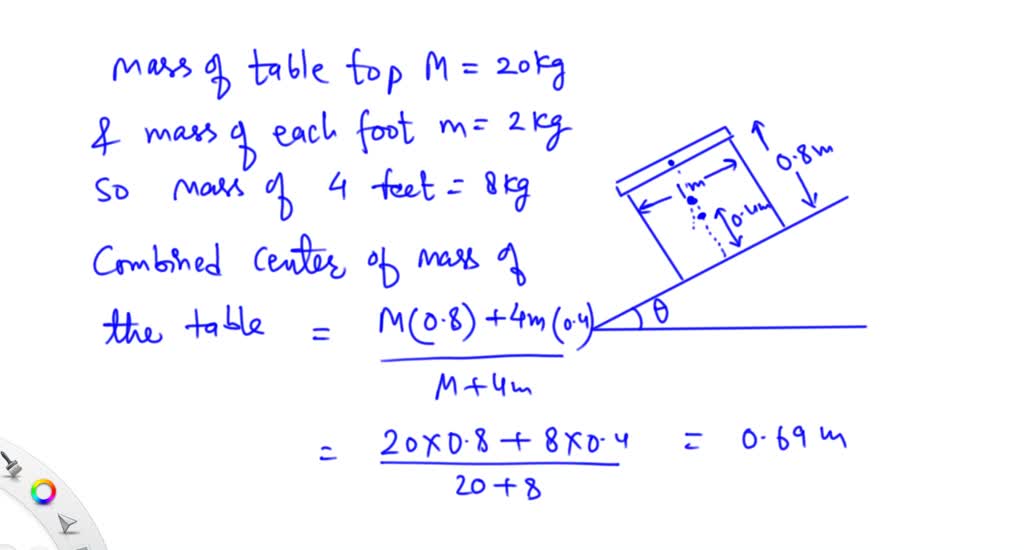 mass of table top M = 20kg
& mass of each foot m = 2kg
so mass of 4 feet = 8kg
Combined center of mass of
the table = M(0.8) + 4m(0.4) / M + 4m
= 20×0.8 + 8×0.4 / 20 + 8 = 0.69 m
0.8m
1m
0.4m
θ